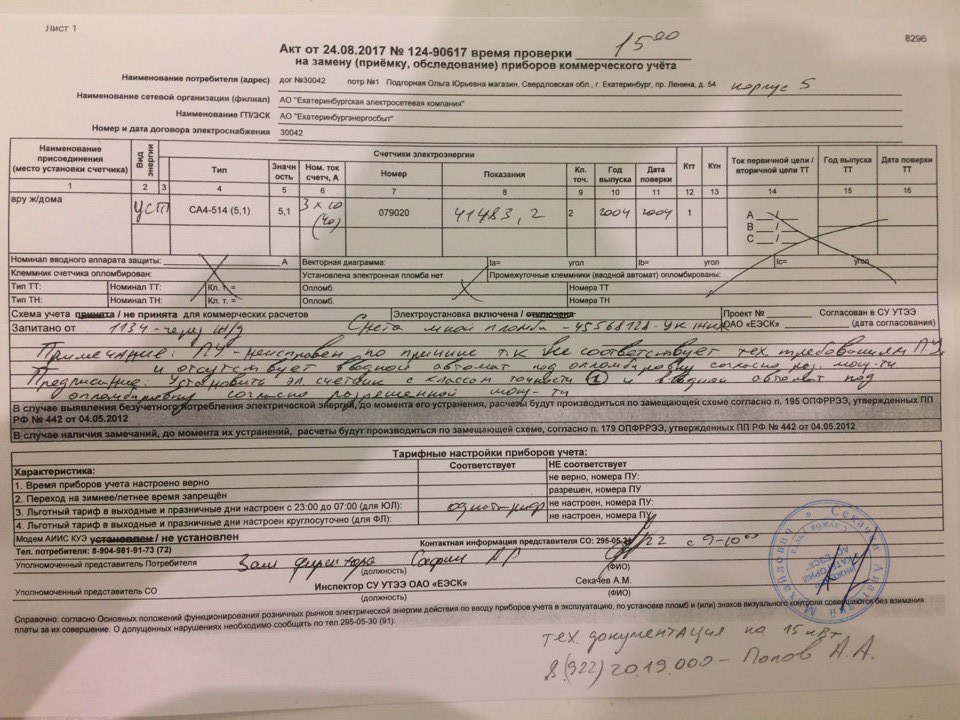 Лист 1
8296
Акт от 24.08.2017 № 124-90617 время проверки 15 00
на замену (приёмку, обследование) приборов коммерческого учёта
Наименование потребителя (адрес) дог №30042 потр №1 Подгорная Ольга Юрьевна магазин, Свердловская обл., г. Екатеринбург, пр. Ленина, д. 54 корпус 5
Наименование сетевой организации (филиал) АО "Екатеринбургская электросетевая компания"
Наименование ГП/ЭСК АО "Екатеринбургэнергосбыт"
Номер и дата договора электроснабжения 30042
Наименование присоединения (место установки счетчика) Вид энергии Счетчики электроэнергии Ктт Ктн Ток первичной цепи / вторичной цепи ТТ Год выпуска ТТ Дата поверки ТТ
Тип Значность Ном. ток счетч, А Номер Показания Кл. точ. Год выпуска Дата поверки
1 2 3 4 5 6 7 8 9 10 11 12 13 14 15 16
вру ж/дома уст СА4-514 (5,1) 5,1 3×10 (40) 079020 41483,2 2 2004 2004 1 А __/__
В __/__
С __/__
Номинал вводного аппарата защиты: А Векторная диаграмма: Ia= угол Ib= угол Ic= угол
Клеммник счетчика опломбирован: Установлена электронная пломба нет Промежуточные клеммники (вводной автомат) опломбированы:
Тип ТТ: Номинал ТТ: Кл. т. = Опломб. Номера ТТ
Тип ТН: Номинал ТН: Кл. т. = Опломб. Номера ТН
Схема учета принята / не принята для коммерческих расчетов Электроустановка включена / отключена Проект № Согласован в СУ УТЭЭ
Запитано от 1134-через ж/д Снята мной пломба -45568128- ОАО «ЕЭСК» (дата согласования)
Примечание: ПУ-неисправен по причине т.к не соответствует тех. требованиям ПУ
и отсутствует вводной автомат под опломбировку согласно раз. мощ-ти
Предписание: Установить эл счетчик с классом точности 1 и вводной автомат под
опломбировку согласно разрешенной мощ-ти
В случае выявления безучетного потребления электрической энергии, до момента его устранения, расчеты будут производиться по замещающей схеме согласно п. 195 ОПФРРЭЭ, утвержденных ПП
РФ № 442 от 04.05.2012
В случае наличия замечаний, до момента их устранений, расчеты будут производиться по замещающей схеме, согласно п. 179 ОПФРРЭЭ, утвержденных ПП РФ № 442 от 04.05.2012
Тарифные настройки приборов учета:
Характеристика: Соответствует НЕ соответствует
1. Время приборов учета настроено верно не верно, номера ПУ:
2. Переход на зимнее/летнее время запрещён разрешен, номера ПУ
3. Льготный тариф в выходные и празничные дни настроен с 23:00 до 07:00 (для ЮЛ): не настроен, номера ПУ:
4. Льготный тариф в выходные и празничные дни настроен круглосуточно (для ФЛ): не настроен, номера ПУ
Модем АИИС КУЭ установлен / не установлен Контактная информация представителя СО: 295-05- 22 с 9-10 00
Тел. потребителя: 8-904-981-91-73 (72)
Уполномоченный представитель Потребителя Зам директора
(должность) (ФИО)
Уполномоченный представитель СО Инспектор СУ УТЭЭ ОАО «ЕЭСК» Секачев А.М.
(должность) (ФИО)
Справочно: согласно Основных положений функционирования розничных рынков электрической энергии действия по вводу приборов учета в эксплуатацию, по установке пломб и (или) знаков визуального контроля совершаются без взимания
платы за их совершение. О допущенных нарушениях необходимо сообщать по тел.295-05-30 (91).
тех документация на 15 кВт
8(922)2019000 - Попов А.А.